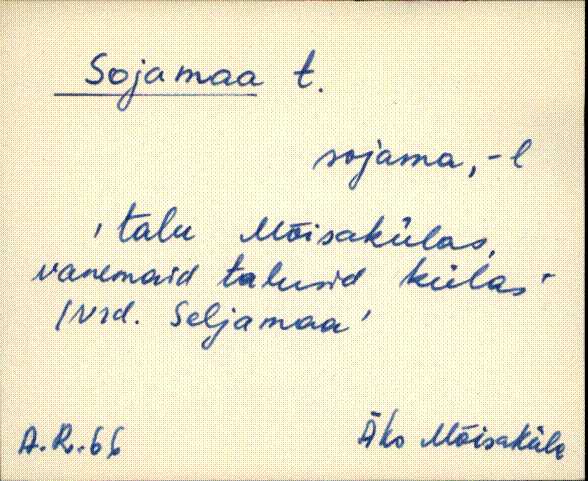 Sojamaa t.
sojama, -l
'talu Mõisakülas,
vanemaid talusid külas'
/Vrd. Seljamaa'
A.R. 66
Äks Mõisaküla